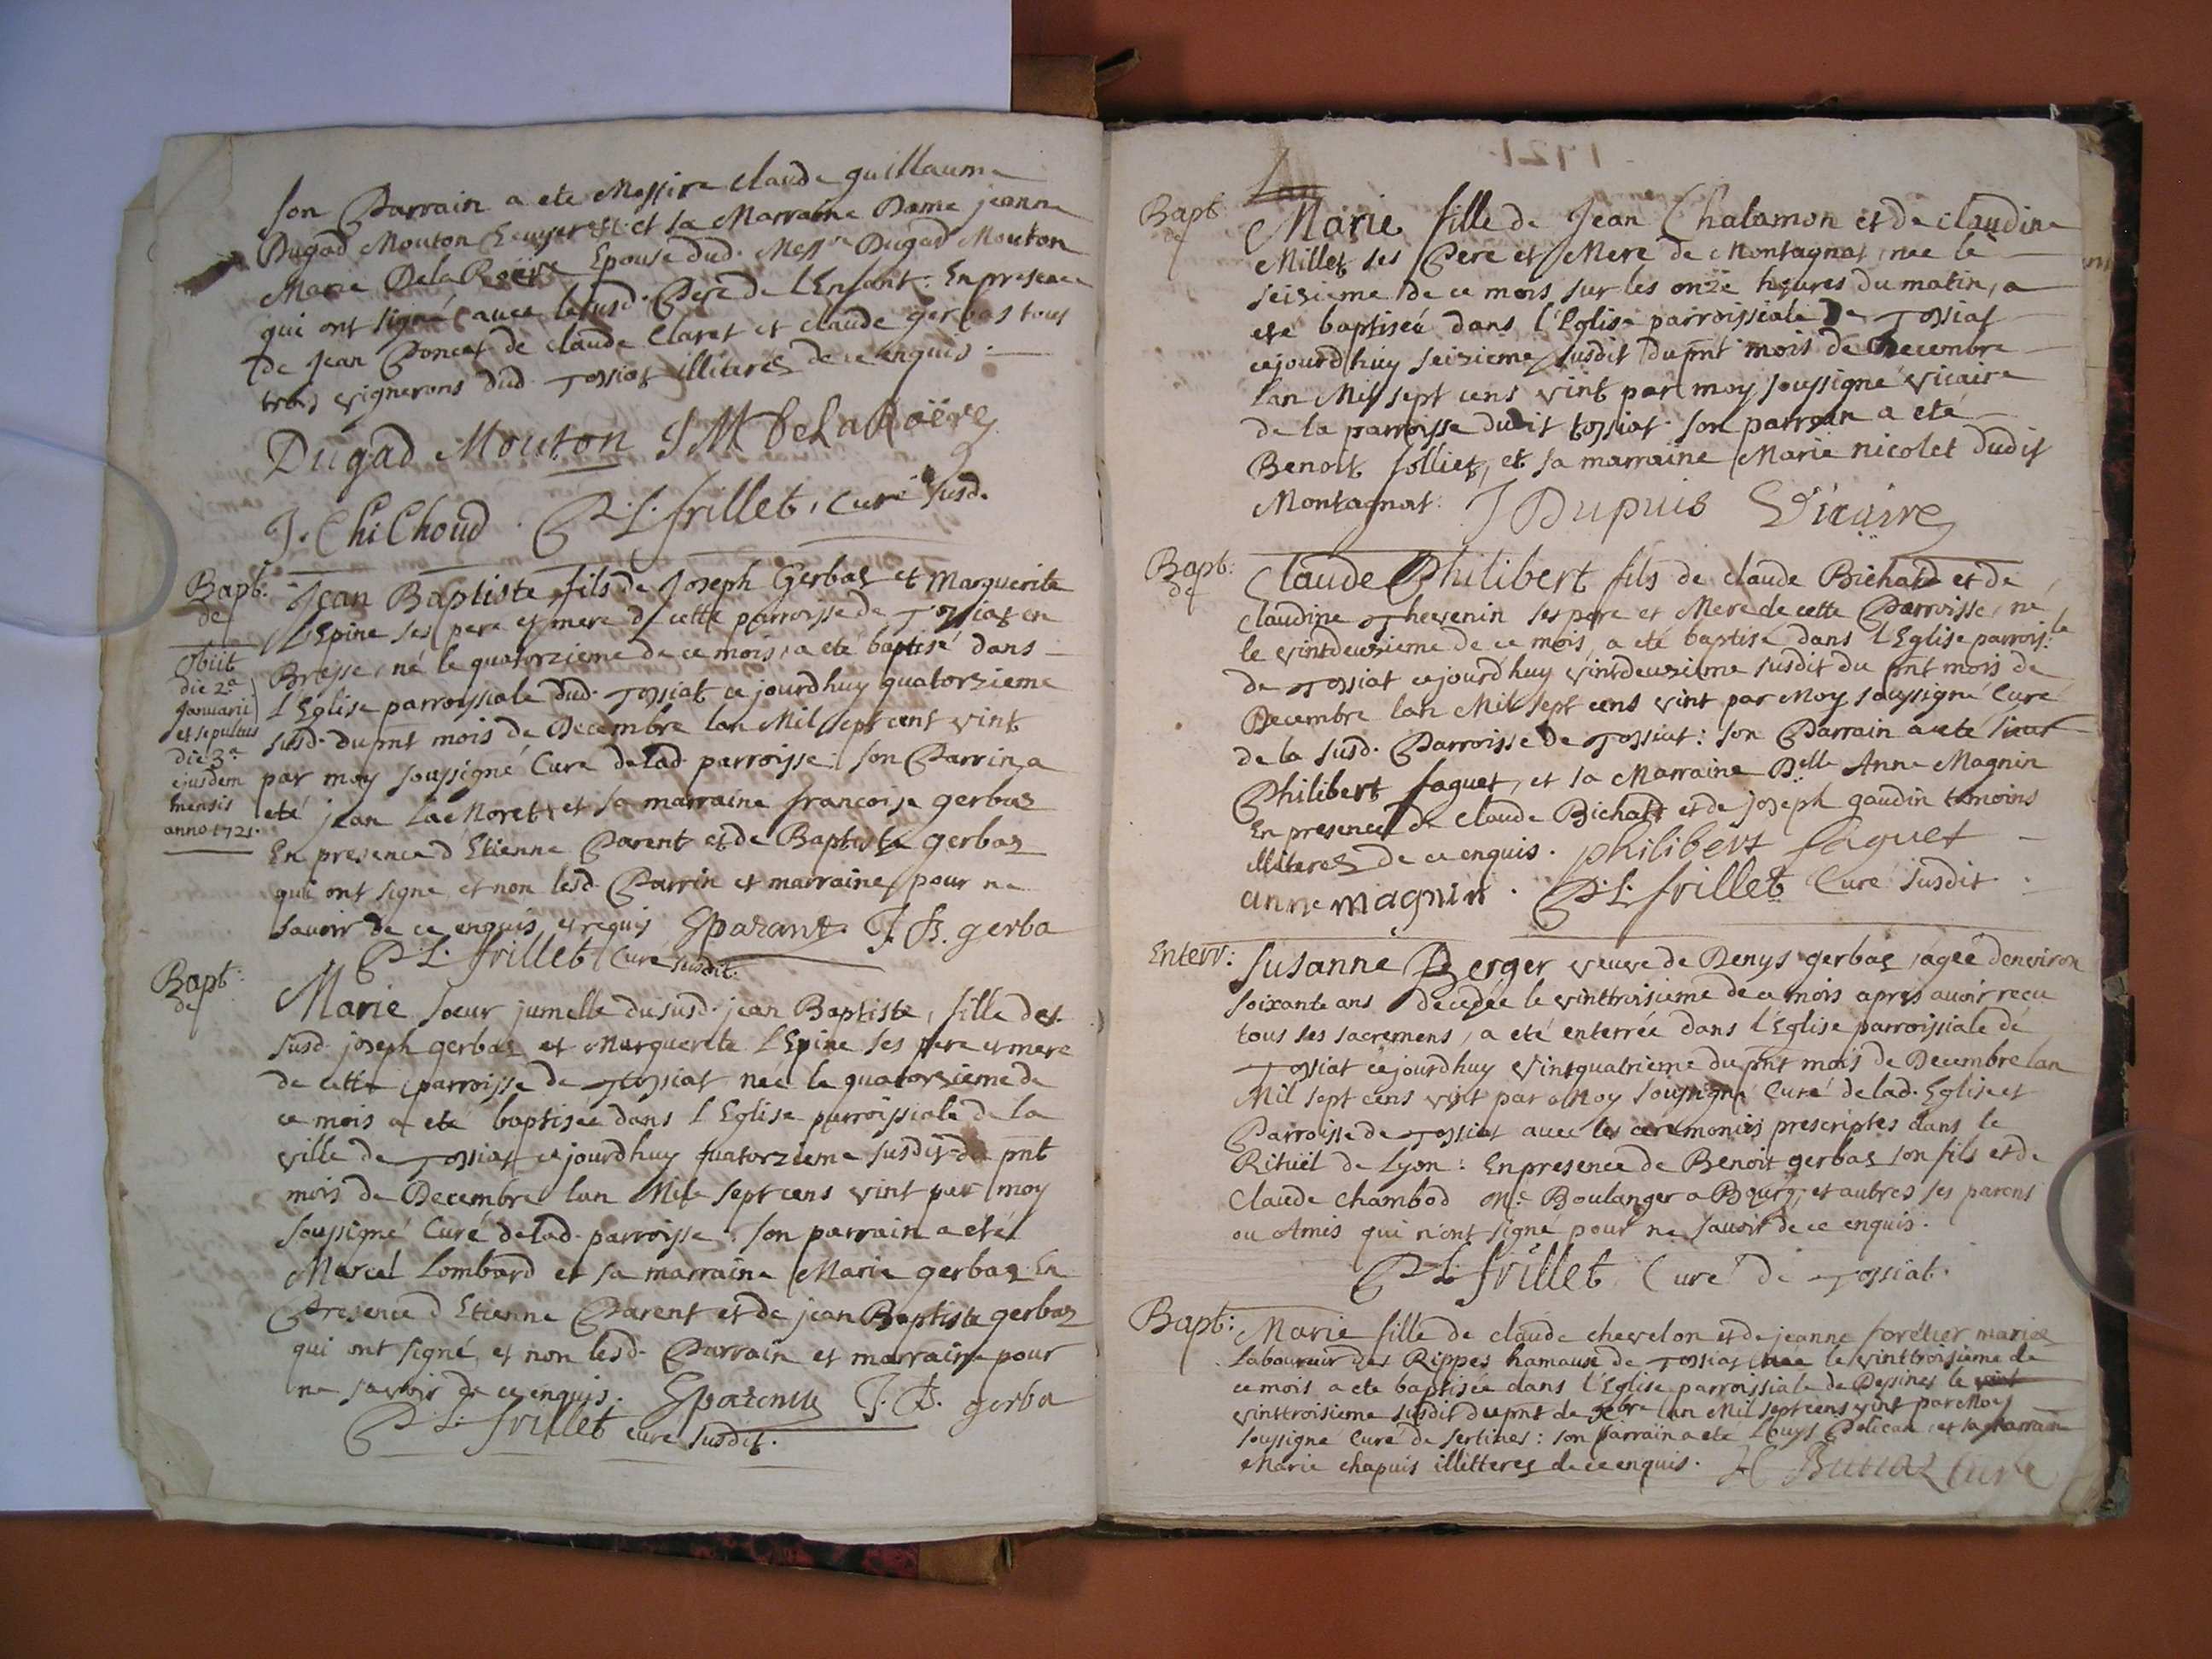 son Parrain a ete Messire Claude guillaume
Dugad Mouton Ecuyer et sa Marraine Dame jeanne
Marie DelaRoëre Epouse dud. Messre Dugad Mouton
qui ont signé avec le susd. Pere de l'Enfant. En presence
de Jean Poncet de claude Claret et claude gerbas tous
trois vignerons dud. Tossiat illiterez de ce enquis.
Dugad Mouton J M DelaRoëre
J. ChiChoud. P. L. frillet, Curé susd.
Bapt:
de
Jean Baptiste fils de Joseph Gerbaz et Marguerite
l'Epine ses pere et mere de cette parroisse de Tossiat en
Bresse, né le quatorzieme de ce mois, a eté baptisé dans
l'Eglise parroissiale dud. Tossiat ce jourdhuy quatorzieme
susd. du pnt mois de Decembre lan Mil sept cent vint
par moy soussigné Curé de lad. parroisse. son Parrin a
eté jean La Moret et sa marraine françoise gerbaz
En presence d'Etienne Parent et de Baptiste gerbaz
qui ont signe et non lesd. Parrin et marraine pour ne
savoir de ce enquis et requis Eparant J. B. gerba
P. L. frillet Curé susdit.
obiit
die 2.a
Januarii
et sepultus
die 3.a
ejusdem
mensis
anno 1721.
Bapt:
de
Marie soeur jumelle du susd. jean Baptiste, fille des
susd. joseph gerbaz et Marguerite l'Epine ses pere et mere
de cette parroisse de Tossiat née le quatorzieme de
ce mois a eté baptisée dans l'Eglise parroissiale de la
ville de Tossiat ce jourdhuy quatorzieme susdit du pnt
mois de Decembre lan Mil sept cens vint par moy
soussigné Curé de lad. parroisse. son parrain a eté
Marcel Lombard et sa marraine Marie gerbaz En
Presence d'Etienne Parent et de jean Baptiste gerbaz
qui ont signé, et non lesd. Parrain et marraine pour
ne savoir de ce enquis. J. B. gerba
P. L. frillet curé susdit.
1721
Lan
Bapt
de
Marie fille de Jean Chalamon et de claudine
Millet ses Pere et Mere de Montagnat, née le
seizieme de ce mois sur les onze heures du matin, a
eté baptisée dans l'Eglise parroissiale de Tossiat
cejourdhuy seizieme susdit du pnt mois de Decembre
lan Mil sept cens vint par moy soussigné vicaire
de la parroisse dudit tossiat. son parrain a eté
Benoit Jolliet, et sa marraine Marie nicolet dudit
Montagnat. J Dupuis Vicaire
Bapt:
de
Claude Philibert fils de claude Bichat et de
claudine Thevenin ses pere et Mere de cette Parroisse, né
le vintdeuzieme de ce mois, a eté baptisé dans l'Eglise parrois.le
de Tossiat cejourdhuy vintdeuzieme susdit du pnt mois de
Decembre lan Mil sept cens vint par Moy soussigné Curé
de la susd. Parroisse de Tossiat: son Parrain a eté sieur
Philibert faguet, et sa Marraine Delle Anne Magnin
En presence de claude Bichat et de joseph gaudin temoins
illiterez de ce enquis. philibert faguet
anne magnin. P. L. frillet Curé susdit.
Enterr:
Susanne Berger veuve de Denys gerbaz, agée denviron
soixante ans decedée le vinttroisieme de ce mois apres avoir recu
tous ses sacremens, a eté enterrée dans l'Eglise parroissiale de
Tossiat cejourdhuy vintquatrieme du pnt mois de Decembre lan
Mil sept cens vint par Moy soussigné Curé de lad. Eglise et
Parroisse de Tossiat avec les ceremonies prescriptes dans le
Rituel de Lyon: En presence de Benoit gerbaz son fils et de
Claude Chambod Me Boulanger a Bourg, et autres ses parens
ou Amis qui n'ont signé pour ne savoir de ce enquis.
P. L. frillet Curé de Tossiat.
Bapt:
Marie fille de claude chevelon et de jeanne forétier mariés
laboureur des Rippes hamause de Tossiat née le vinttroisieme de
ce mois a ete baptisée dans l'Eglise parroissiale de le vint
vinttroisieme susdit du pnt de Xbre lan Mil sept cens vint par Moy
soussigné Curé de Sertines: son parrain a eté Louys Pelican, et sa marraine
Marie chapuis illitterez de ce enquis. Curé